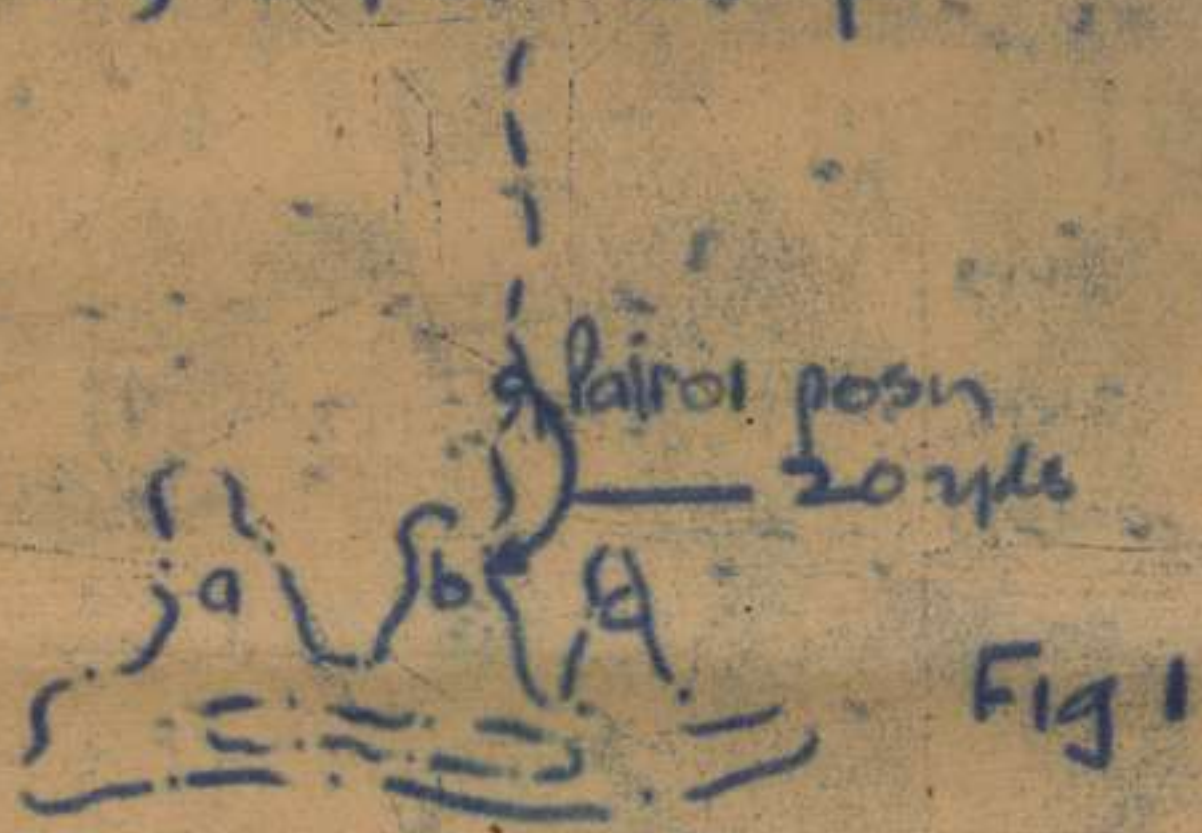 Patrol posn
20 yds
a
b
c
Fig 1